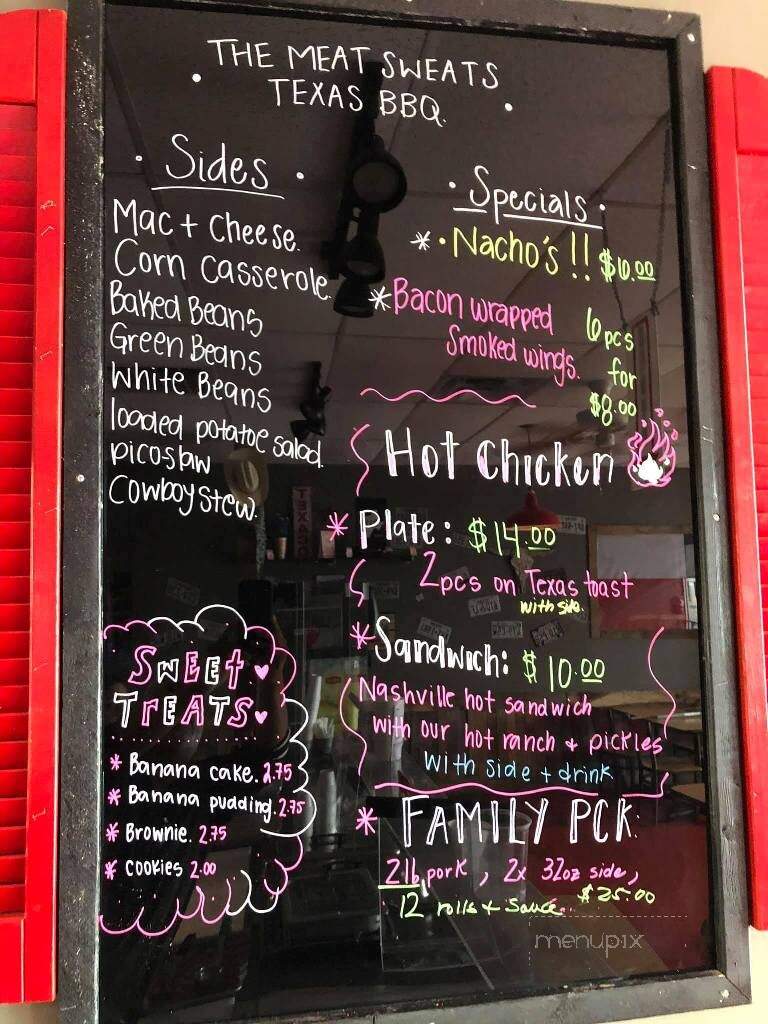 THE MEAT SWEATS
TEXAS BBQ.
Sides
Mac + Cheese.
Corn Casserole.
Baked Beans
Green Beans
White Beans
loaded potatoe salad.
picoslaw
Cowboy stew.
Sweet
Treats
* Banana cake. 2.75
* Banana pudding. 2.75
* Brownie. 2.75
* cookies 2.00
Specials
* Nacho's!! $10.00
* Bacon wrapped 6pcs
Smoked wings. for
$8.00
Hot Chicken
* Plate: $14.00
2pcs on Texas toast
with side.
* Sandwich: $10.00
Nashville hot sandwich
with our hot ranch + pickles
with side + drink
* FAMILY PCK:
2lb pork, 2x 32oz side,
12 rolls + sauce. $25.00
menupix